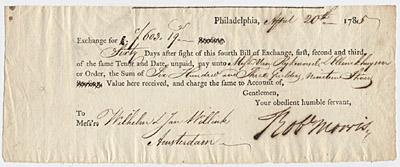 Philadelphia, April 20th 178
Exchange for ƒ603.19.
Sixty Days after sight of this fourth Bill of Exchange, first, second and third,
of the same Tenor and Date, unpaid, pay unto Messrs Van
or Order, the Sum of Six Hundred and Three Guilders, nineteen Stivers
Value here received, and charge the same to Account of,
Gentlemen,
Your obedient humble servant,
To
Messrs Wilhelm & Jan Willink
Amsterdam
Robt Morris